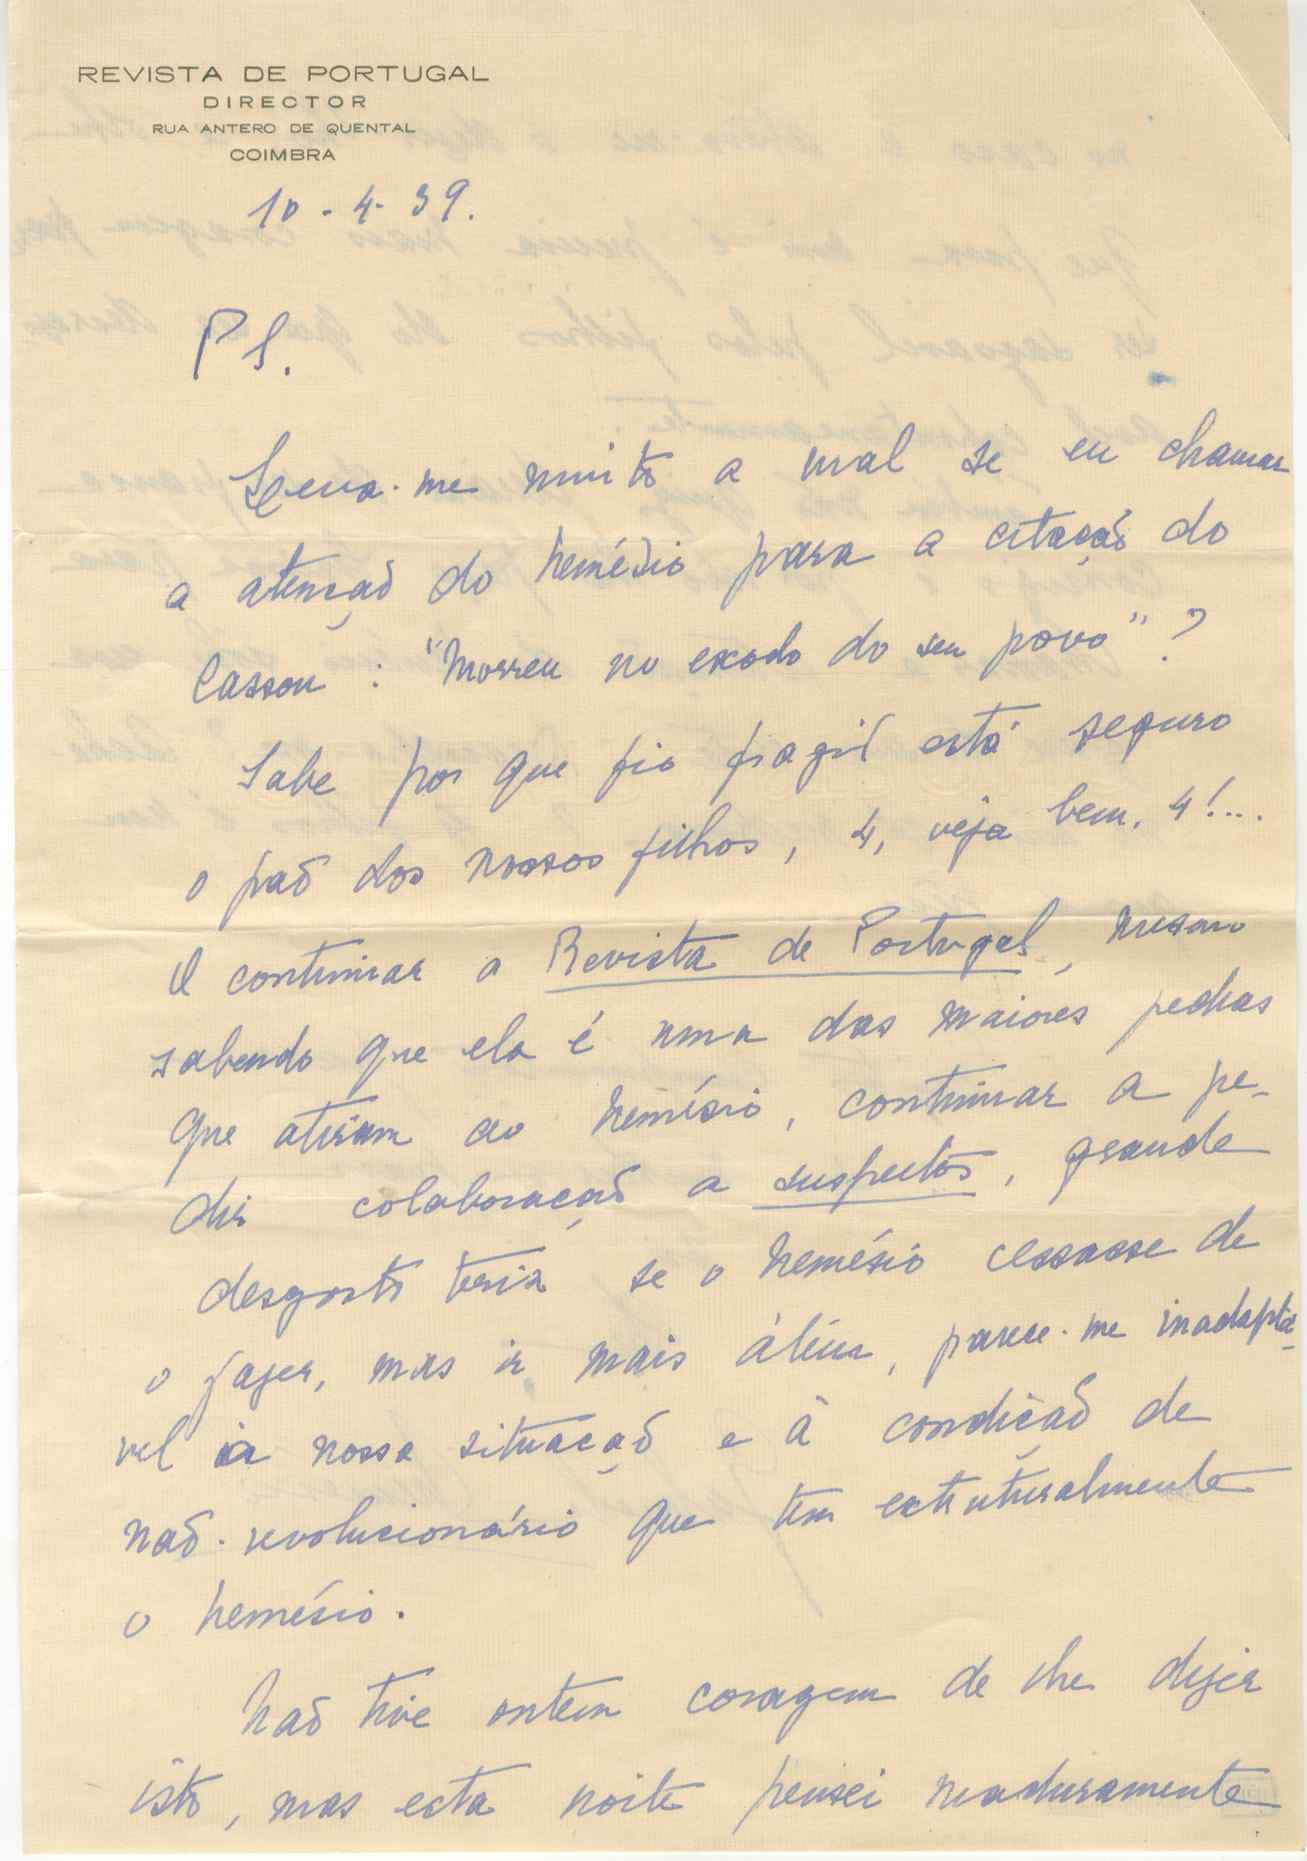 REVISTA DE PORTUGAL
DIRECTOR
RUA ANTERO DE QUENTAL
COIMBRA
10 - 4 - 39.
P S.
Leva-me muito a mal se eu chamar
a atenção do Nemésio para a citação do
Cassou : "Morreu no exodo do seu povo" ?
Sabe por que fio fragil está seguro
o pão dos nossos filhos, 4, veja bem, 4!...
A continuar a Revista de Portugal, mesmo
sabendo que ela é uma das maiores pedras
que atiram ao Nemésio, continuar a pe-
dir colaboração a suspeitos, grande
desgosto teria se o Nemésio cessasse de
o fazer, mas ir mais álém, parece-me inadaptá-
vel à nossa situação e à condição de
não-revolucionário que tem estruturalmente
o Nemésio.
Não tive ontem coragem de lhe dizer
isto, mas esta noite pensei maduramente